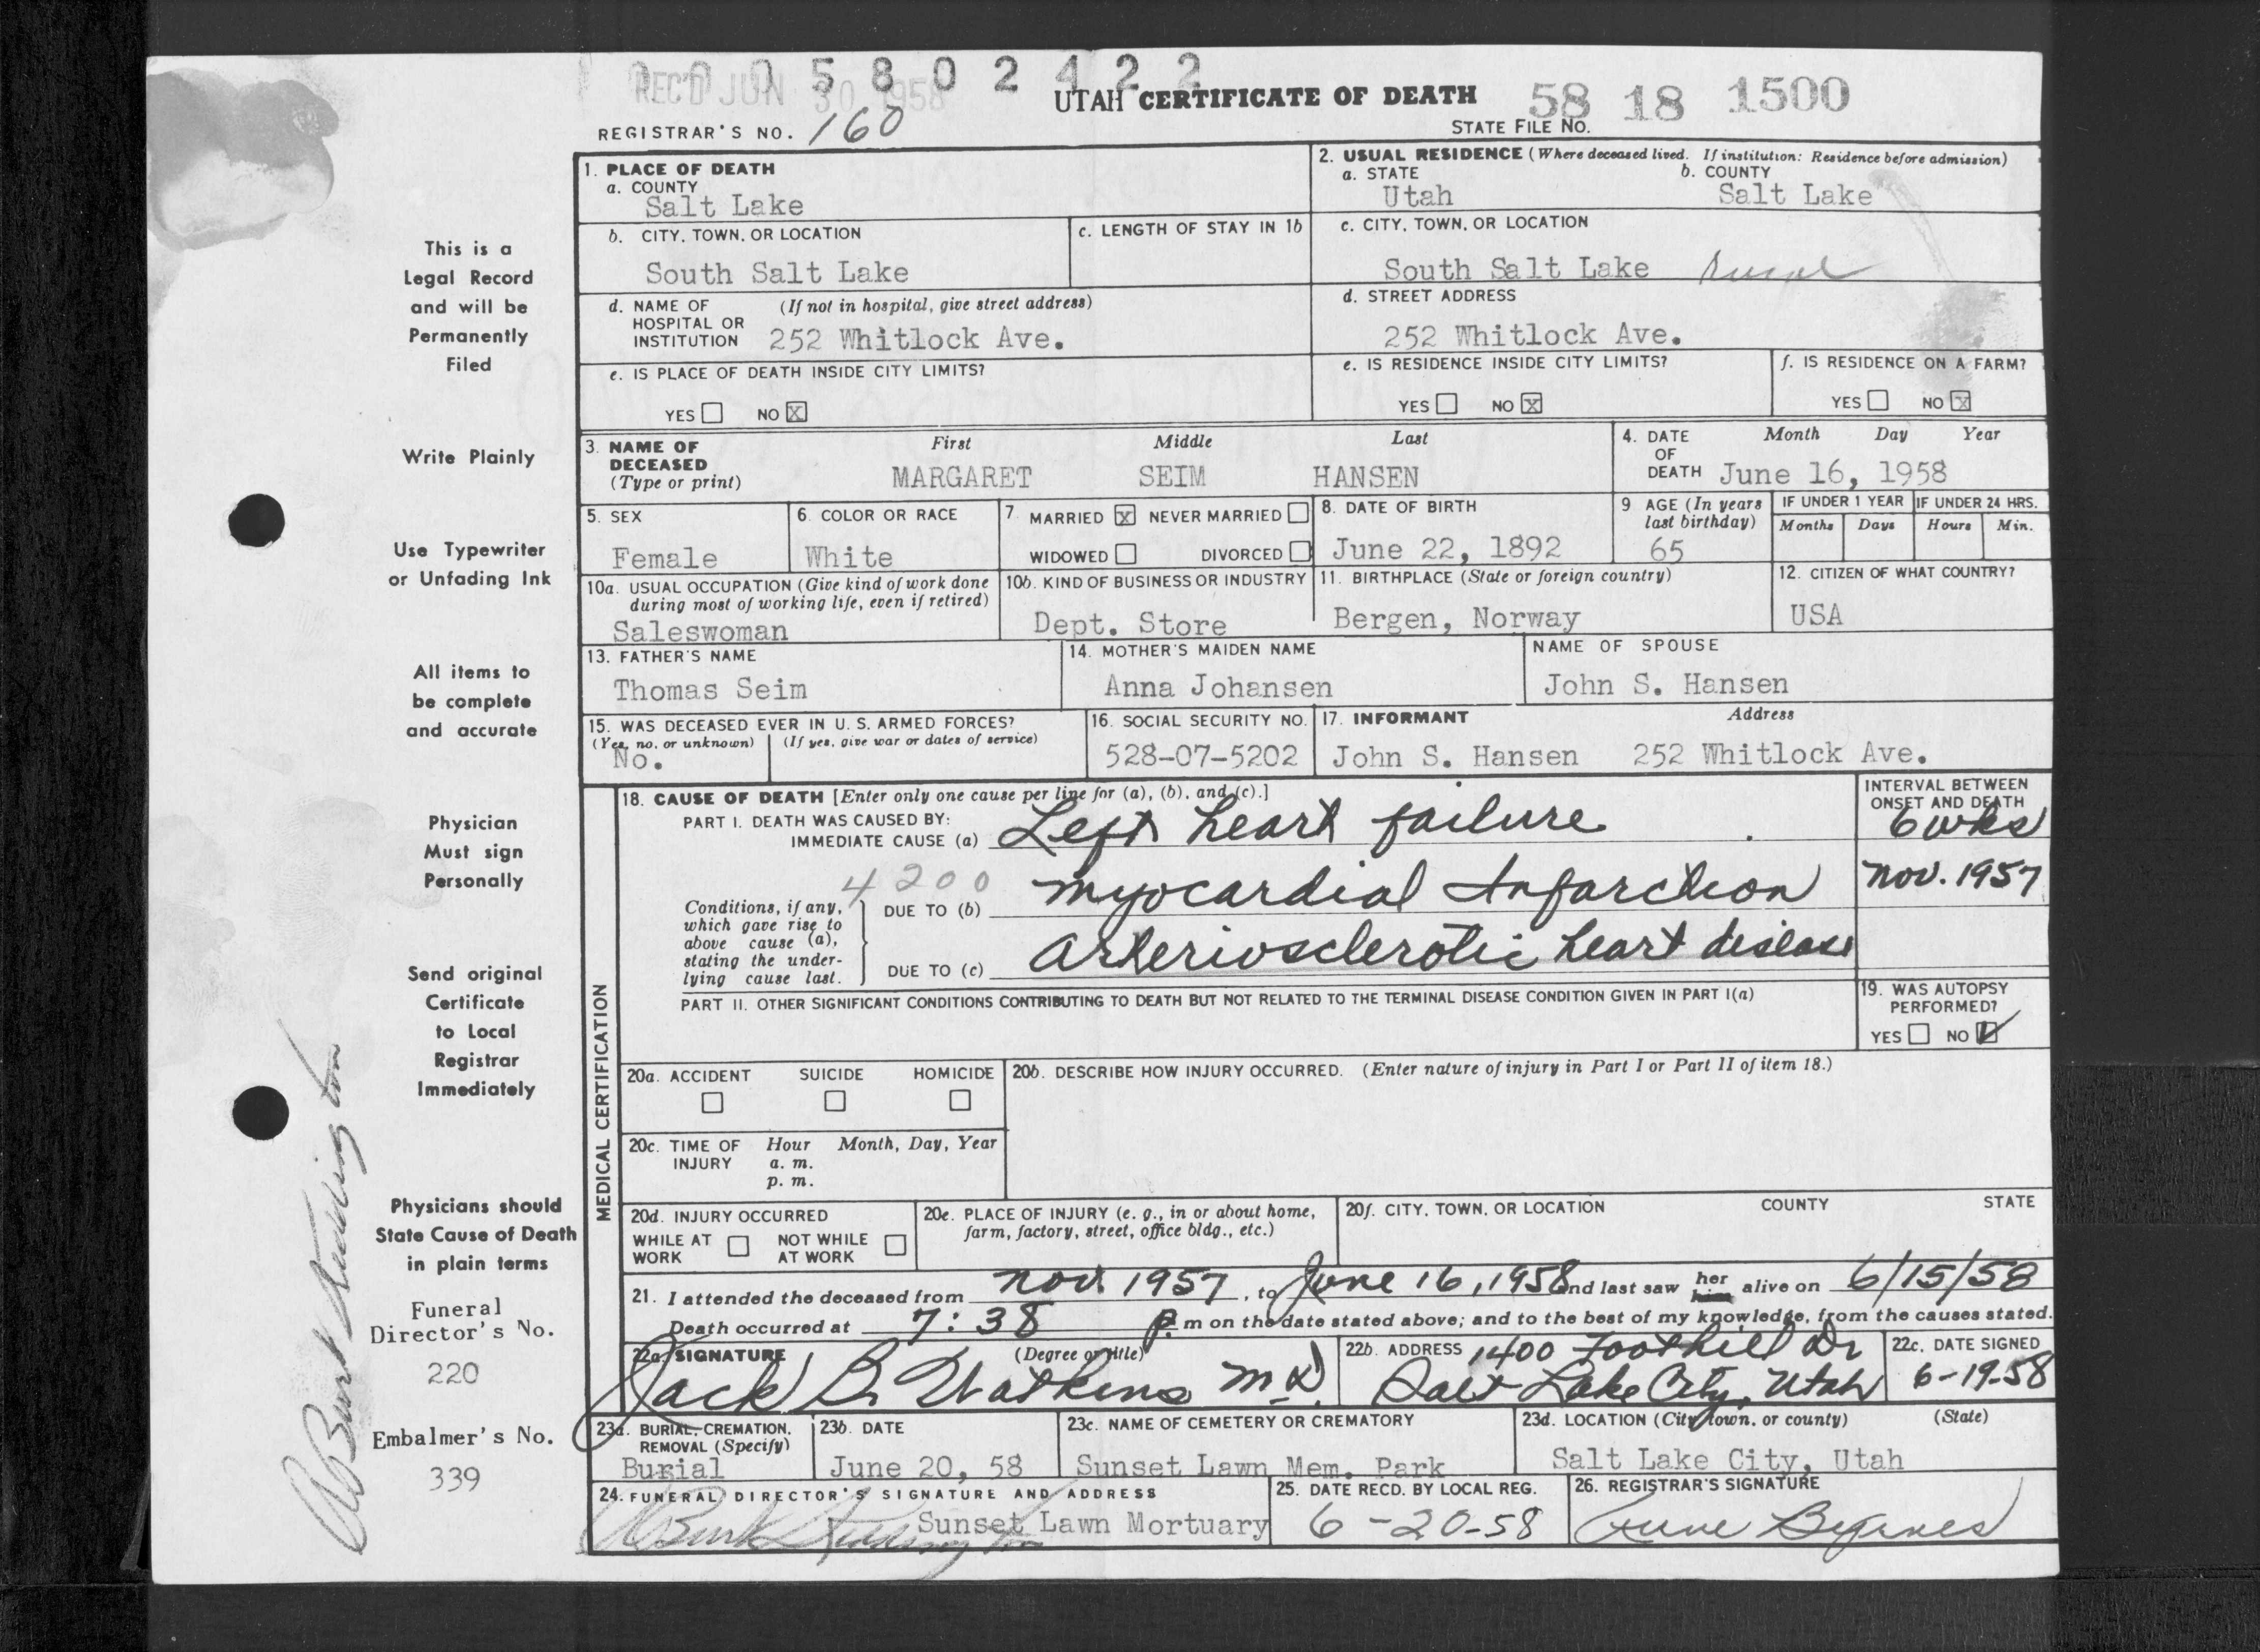 1 0 0 5 8 0 2 4 2 2
REC'D JUN 30 1958
UTAH CERTIFICATE OF DEATH
58 18 1500
STATE FILE NO.
REGISTRAR'S NO. 160
1. PLACE OF DEATH
a. COUNTY
Salt Lake
2. USUAL RESIDENCE (Where deceased lived. If institution: Residence before admission)
a. STATE b. COUNTY
Utah Salt Lake
b. CITY, TOWN, OR LOCATION
South Salt Lake
c. LENGTH OF STAY IN 1b
c. CITY, TOWN, OR LOCATION
South Salt Lake rural
d. NAME OF HOSPITAL OR INSTITUTION (If not in hospital, give street address)
252 Whitlock Ave.
d. STREET ADDRESS
252 Whitlock Ave.
e. IS PLACE OF DEATH INSIDE CITY LIMITS?
YES NO X
e. IS RESIDENCE INSIDE CITY LIMITS?
YES NO X
f. IS RESIDENCE ON A FARM?
YES NO X
3. NAME OF DECEASED (Type or print)
First Middle Last
MARGARET SEIM HANSEN
4. DATE OF DEATH
Month Day Year
June 16, 1958
5. SEX
Female
6. COLOR OR RACE
White
7. MARRIED X NEVER MARRIED
WIDOWED DIVORCED
8. DATE OF BIRTH
June 22, 1892
9 AGE (In years last birthday)
65
IF UNDER 1 YEAR
Months Days
IF UNDER 24 HRS.
Hours Min.
10a. USUAL OCCUPATION (Give kind of work done during most of working life, even if retired)
Saleswoman
10b. KIND OF BUSINESS OR INDUSTRY
Dept. Store
11. BIRTHPLACE (State or foreign country)
Bergen, Norway
12. CITIZEN OF WHAT COUNTRY?
USA
13. FATHER'S NAME
Thomas Seim
14. MOTHER'S MAIDEN NAME
Anna Johansen
NAME OF SPOUSE
John S. Hansen
15. WAS DECEASED EVER IN U.S. ARMED FORCES?
(Yes, no, or unknown) (If yes, give war or dates of service)
No.
16. SOCIAL SECURITY NO.
528-07-5202
17. INFORMANT Address
John S. Hansen 252 Whitlock Ave.
MEDICAL CERTIFICATION
18. CAUSE OF DEATH [Enter only one cause per line for (a), (b), and (c).]
INTERVAL BETWEEN ONSET AND DEATH
PART I. DEATH WAS CAUSED BY:
IMMEDIATE CAUSE (a) Left heart failure 6 wks
4200
Conditions, if any, which gave rise to above cause (a), stating the underlying cause last.
DUE TO (b) myocardial Infarction Nov. 1957
DUE TO (c) arteriosclerotic heart disease
PART II. OTHER SIGNIFICANT CONDITIONS CONTRIBUTING TO DEATH BUT NOT RELATED TO THE TERMINAL DISEASE CONDITION GIVEN IN PART I(a)
19. WAS AUTOPSY PERFORMED?
YES NO ✓
20a. ACCIDENT SUICIDE HOMICIDE
20b. DESCRIBE HOW INJURY OCCURRED. (Enter nature of injury in Part I or Part II of item 18.)
20c. TIME OF INJURY Hour Month, Day, Year
a. m.
p. m.
20d. INJURY OCCURRED
WHILE AT WORK NOT WHILE AT WORK
20e. PLACE OF INJURY (e. g., in or about home, farm, factory, street, office bldg., etc.)
20f. CITY, TOWN, OR LOCATION COUNTY STATE
21. I attended the deceased from Nov. 1957, to June 16, 1958 and last saw her him alive on 6/15/58
Death occurred at 7:38 P. m on the date stated above; and to the best of my knowledge, from the causes stated.
22a. SIGNATURE (Degree or title)
Jack B. Watkins M.D.
22b. ADDRESS 1400 Foothill Dr
Salt Lake City, Utah
22c. DATE SIGNED
6-19-58
23a. BURIAL, CREMATION, REMOVAL (Specify)
Burial
23b. DATE
June 20, 58
23c. NAME OF CEMETERY OR CREMATORY
Sunset Lawn Mem. Park
23d. LOCATION (City, town, or county) (State)
Salt Lake City, Utah
24. FUNERAL DIRECTOR'S SIGNATURE AND ADDRESS
Sunset Lawn Mortuary
25. DATE RECD. BY LOCAL REG.
6-20-58
26. REGISTRAR'S SIGNATURE
June Byrnes
This is a
Legal Record
and will be
Permanently
Filed
Write Plainly
Use Typewriter
or Unfading Ink
All items to
be complete
and accurate
Physician
Must sign
Personally
Send original
Certificate
to Local
Registrar
Immediately
Physicians should
State Cause of Death
in plain terms
Funeral
Director's No.
220
Embalmer's No.
339